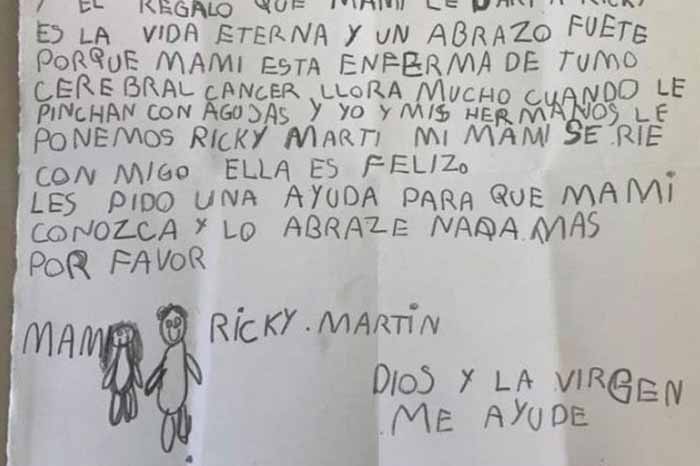 Y EL REGALO QUE MAMI LE DARIA A RICKY
ES LA VIDA ETERNA Y UN ABRAZO FUETE
PORQUE MAMI ESTA ENFERMA DE TUMO
CEREBRAL CANCER LLORA MUCHO CUANDO LE
PINCHAN CON AGUJAS Y YO Y MIS HERMANOS LE
PONEMOS RICKY MARTI MI MAMI SE RIE
CON MIGO ELLA ES FELIZ.
LES PIDO UNA AYUDA PARA QUE MAMI
CONOZCA Y LO ABRAZE NADA.MAS
POR FAVOR
MAMI RICKY.MARTIN
DIOS Y LA VIRGEN
.ME AYUDE